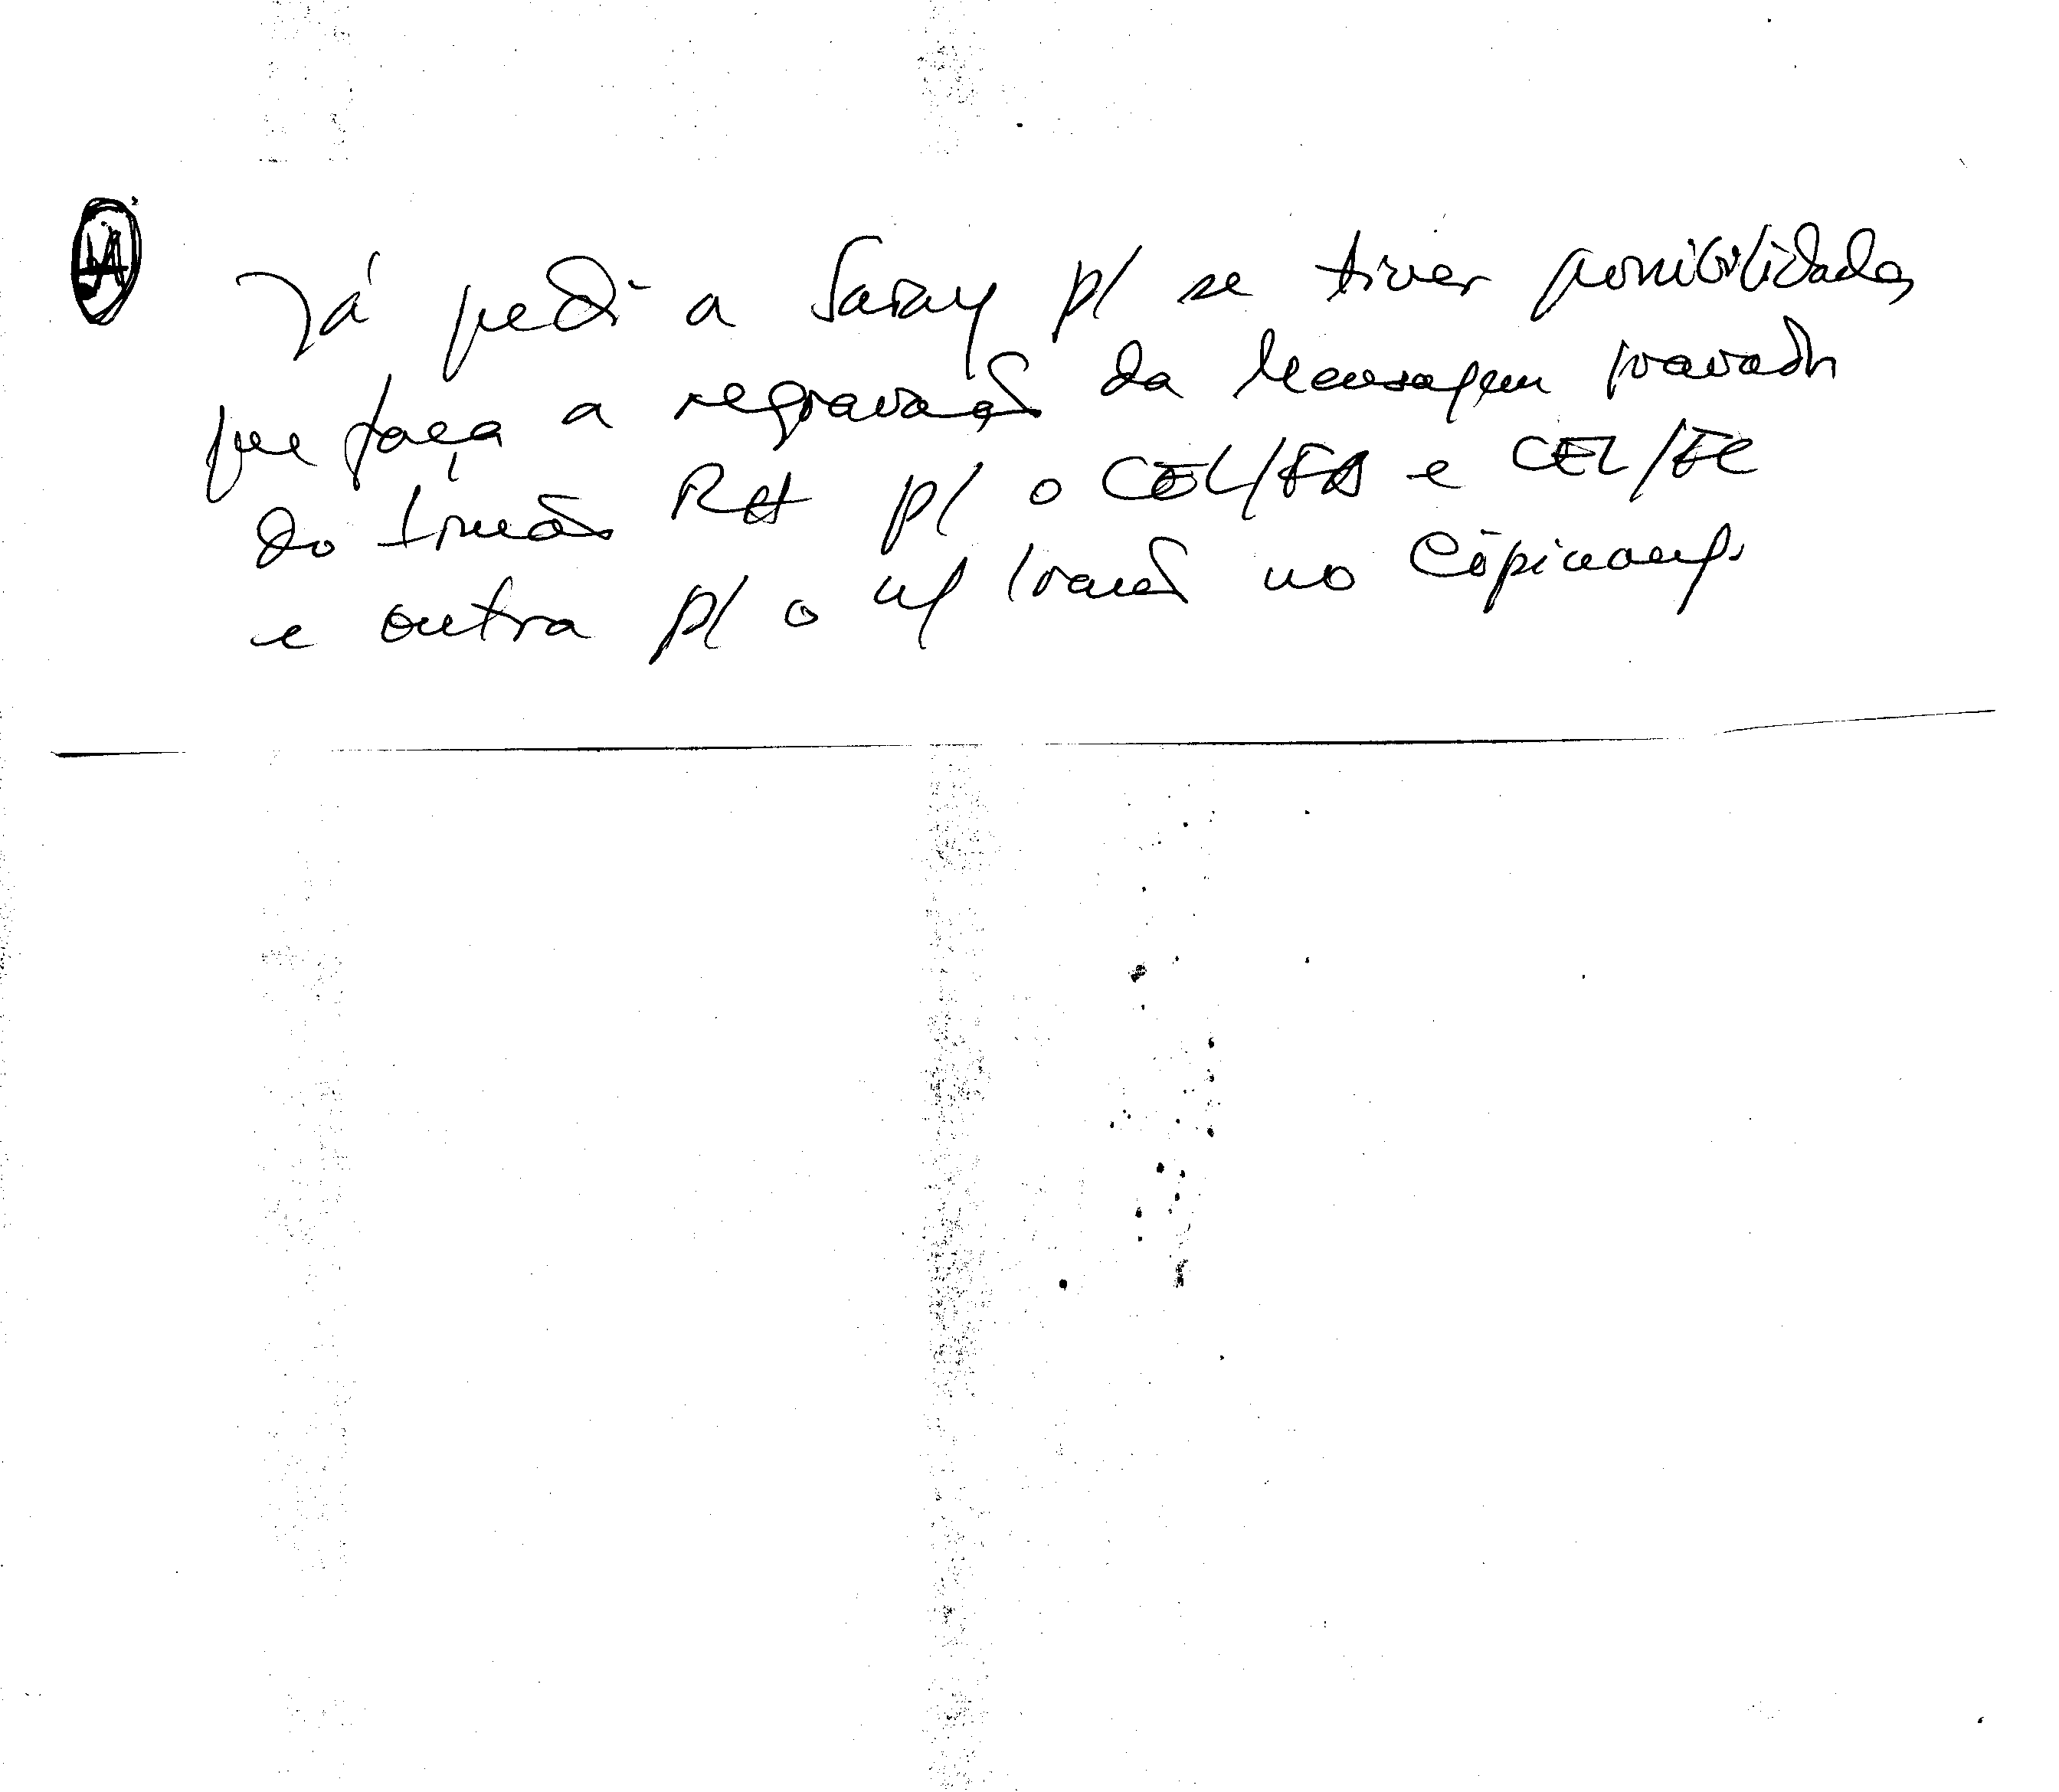 Já pedi a Saray p/ se tiver possibilidades
que faça a regravação da Mensagem gravada
do Irmão RH p/ o CEL/FA e CEL/FC
e outra p/ o n/ Irmão no Cipinang.